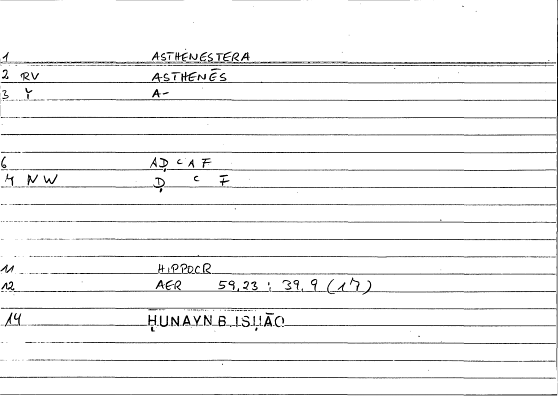 1 ASTHENESTERA
2 RV ASTHENĒS
3 Y A-
6 AḌ ʿ A F
4 N W Ḍ ʿ F
11 HIPPOCR
12 AER 59,23 : 39,9 (17)
14 ḤUNAYN B. ISḤĀQ